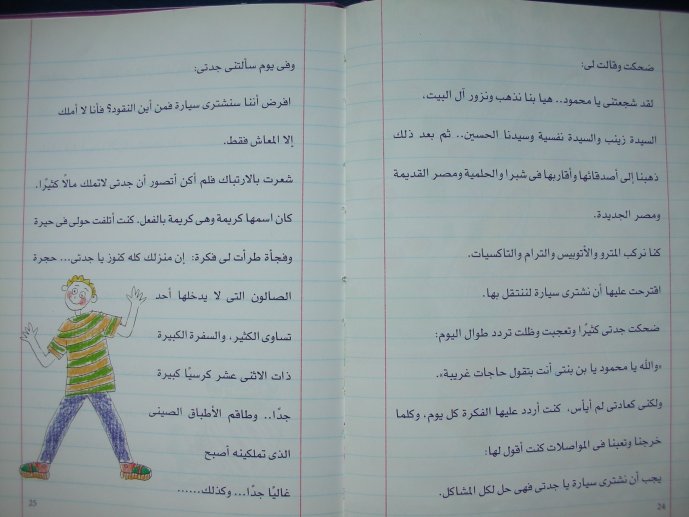 ضحكت وقالت لى:
لقد شجعتنى يا محمود.. هيا بنا نذهب ونزور آل البيت،
السيدة زينب والسيدة نفسية وسيدنا الحسين.. ثم بعد ذلك
ذهبنا إلى أصدقائها وأقاربها فى شبرا والحلمية ومصر القديمة
ومصر الجديدة.
كنا نركب المترو والأتوبيس والترام والتاكسيات.
اقترحت عليها أن نشترى سيارة لننتقل بها.
ضحكت جدتى كثيرًا وتعجبت وظلت تردد طوال اليوم:
«والله يا محمود يا بن بنتى أنت بتقول حاجات غريبة».
ولكنى كعادتى لم أيأس، كنت أردد عليها الفكرة كل يوم، وكلما
خرجنا وتعبنا فى المواصلات كنت أقول لها:
يجب أن نشترى سيارة يا جدتى فهى حل لكل المشاكل.
24
وفى يوم سألتنى جدتى:
افرض أننا سنشترى سيارة فمن أين النقود؟ فأنا لا أملك
إلا المعاش فقط.
شعرت بالارتباك فلم أكن أتصور أن جدتى لاتملك مالًا كثيرًا.
كان اسمها كريمة وهى كريمة بالفعل. كنت أتلفت حولى فى حيرة
وفجأة طرأت لى فكرة: إن منزلك كله كنوز يا جدتى... حجرة
الصالون التى لا يدخلها أحد
تساوى الكثير، والسفرة الكبيرة
ذات الاثنى عشر كرسيًا كبيرة
جدًا.. وطاقم الأطباق الصينى
الذى تملكينه أصبح
غاليًا جدًا... وكذلك......
25